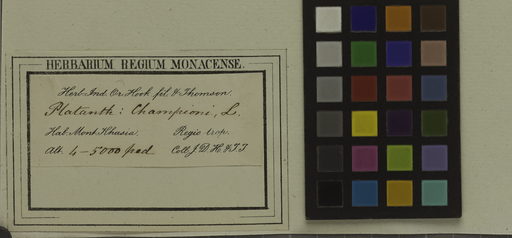 HERBARIUM REGIUM MONACENSE.
Herb. Ind. Or. Hook. fil. & Thomson.
Platanth: Championi, L.
Hab. Mont. Khasia. Regio trop.
Alt. 4-5000 ped. Coll. J. D. H. & T. T.